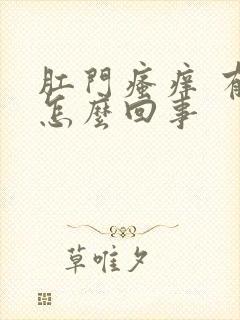 肛門瘙痒
怎麼回事
草唯夕